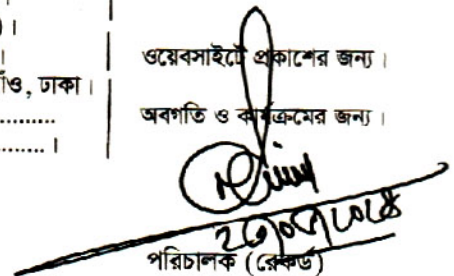 ) ।
।
গাঁও, ঢাকা ।
..........
........ ।
ওয়েবসাইটে প্রকাশের জন্য ।
অবগতি ও কার্যক্রমের জন্য ।
পরিচালক (রেকর্ড)